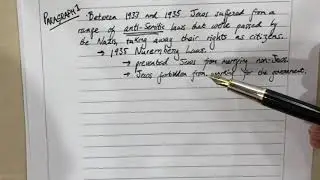 PARAGRAPH 1
• Between 1933 and 1935 Jews suffered from a
range of anti-Semitic laws that were passed by
the Nazis, taking away their rights as citizens.
→ 1935 Nuremberg Laws.
→ prevented Jews from marrying non-Jews.
→ Jews forbidden from working for the government.